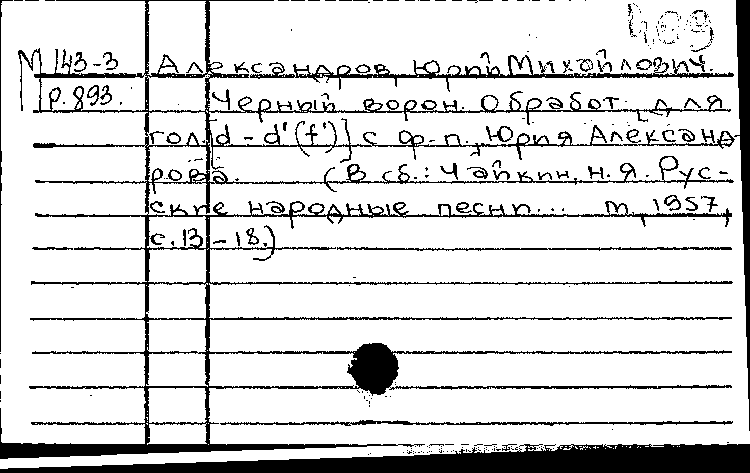 409
М 143-3 Александров, Юрий Михайлович.
р. 893. Черный ворон. Обработ. для
гол. [d - d'(f')] с ф-п., Юрия Александ-
рова. (В сб.: Чайкин, Н. Я. Рус-
ские народные песни... М., 1957,
с. 13 - 18.)